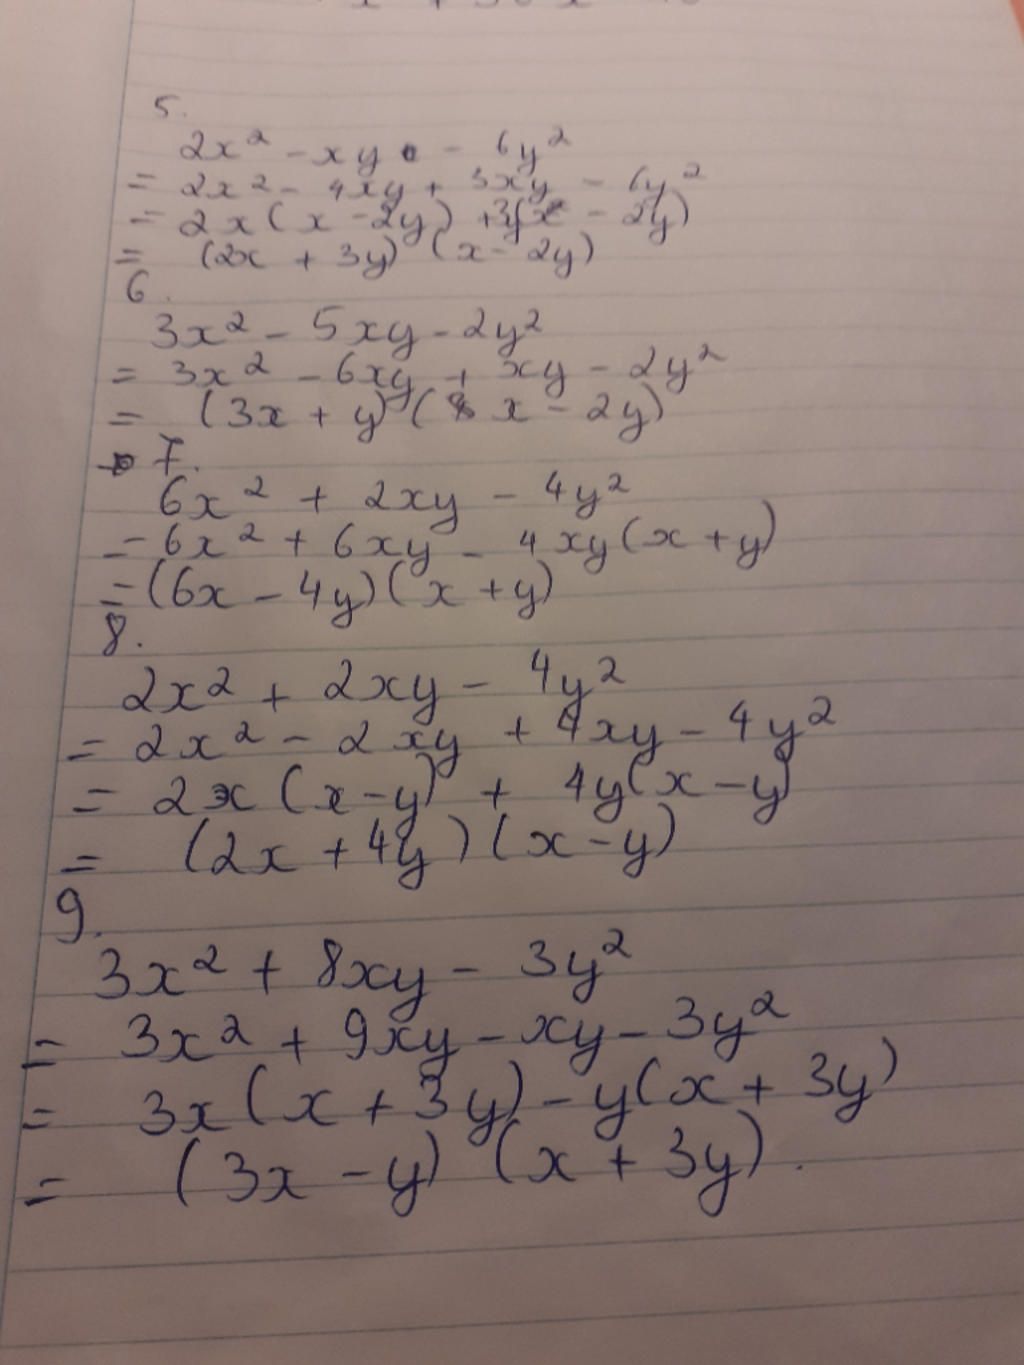 5.
2x² - xy - 6y²
= 2x² - 4xy + 3xy - 6y²
= 2x(x - 2y) + 3y(x - 2y)
= (2x + 3y)(x - 2y)
6.
3x² - 5xy - 2y²
= 3x² - 6xy + xy - 2y²
= (3x + y)(x - 2y)
7.
6x² + 2xy - 4y²
= 6x² + 6xy - 4xy(x + y)
= (6x - 4y)(x + y)
8.
2x² + 2xy - 4y²
= 2x² - 2xy + 4xy - 4y²
= 2x(x - y) + 4y(x - y)
= (2x + 4y)(x - y)
9.
3x² + 8xy - 3y²
= 3x² + 9xy - xy - 3y²
= 3x(x + 3y) - y(x + 3y)
= (3x - y)(x + 3y).